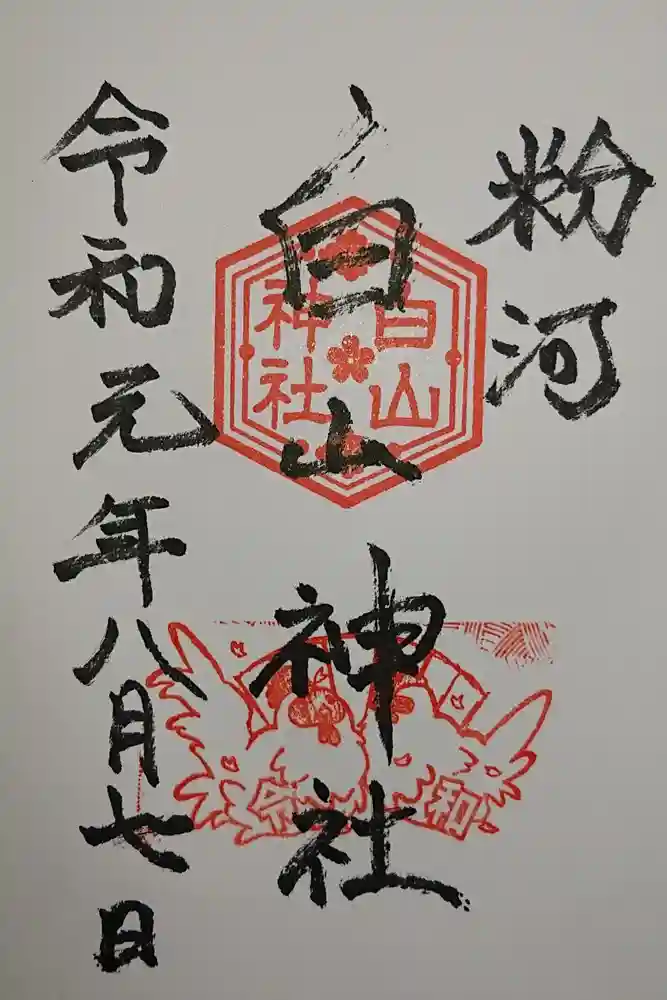 粉河
白山神社
令和元年八月七日
白山
神社
令和